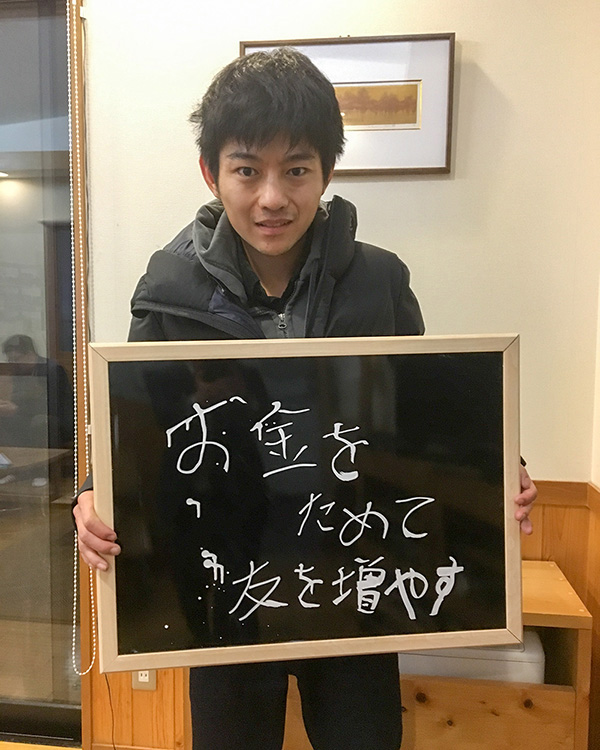 お金を
ためて
友を増やす